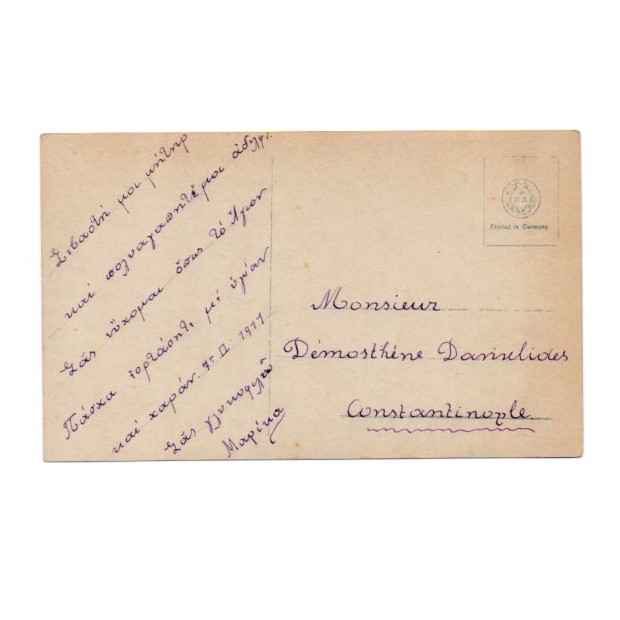 Σεβαστή μοι μήτηρ
καί πολυαγαπητέ μοι ἀδελφέ.
Σᾶς εὔχομαι ὅπως τό Ἅγιον
Πάσχα ἑορτάσητε μέ ὑγείαν
καί χαράν. 1917
Σᾶς γλυκοφιλῶ
Μαρίκα
Printed in Germany.
Monsieur
Démosthène Danielides
Constantinople